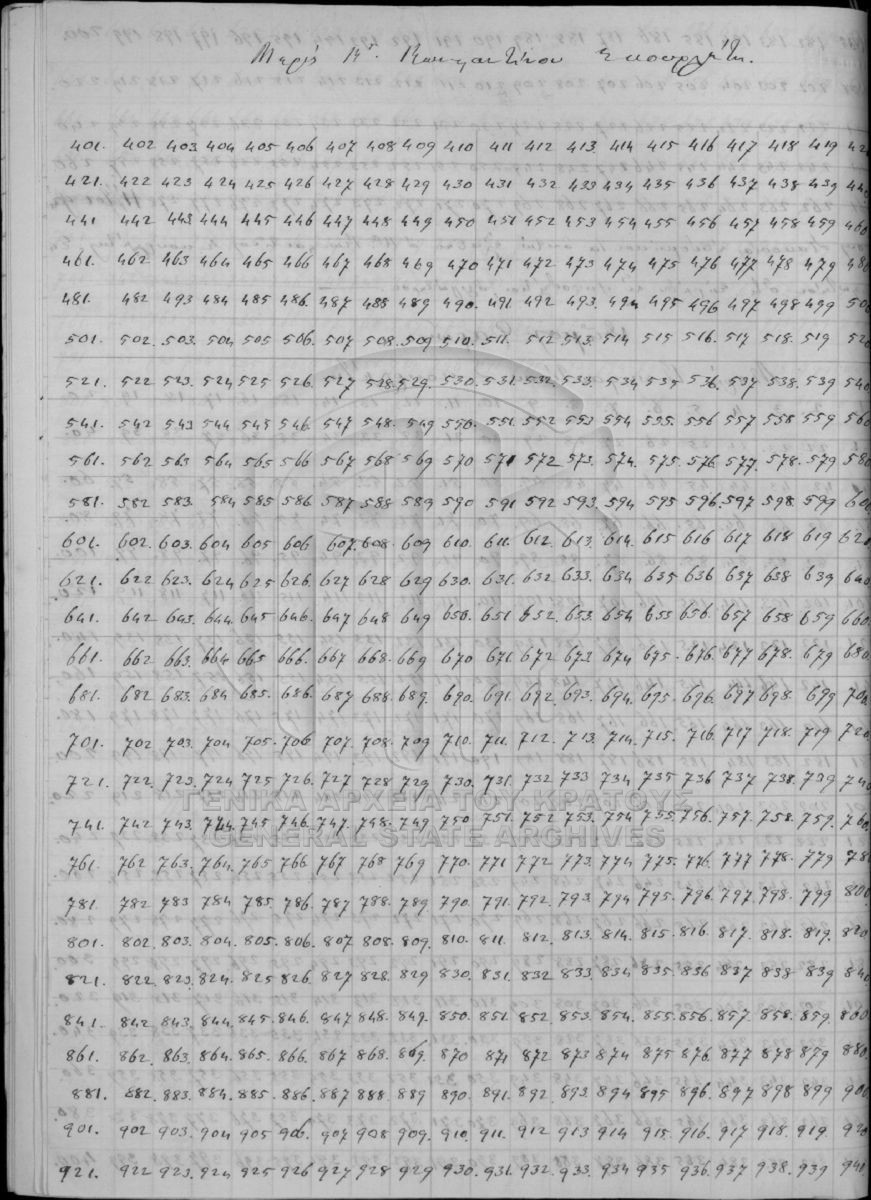 Μερίς Βα. Κωνσταντίνου
401. 402 403 404 405 406 407 408 409 410 411 412 413. 414 415 416 417 418 419 420
421. 422 423 424 425 426 427 428 429 430 431 432 433 434 435 436 437 438 439 440
441 442 443 444 445 446 447 448 449 450 451 452 453 454 455 456 457 458 459 460
461. 462 463 464 465 466 467 468 469 470 471 472 473 474 475 476 477 478 479 480
481. 482 493 484 485 486. 487 488 489 490. 491 492 493. 494 495 496 497 498 499 500
501. 502. 503. 504 505 506. 507 508. 509 510. 511. 512 513. 514 515 516. 517 518. 519 520
521. 522 523. 524 525 526. 527 528. 529. 530. 531. 532. 533. 534 535 536. 537 538. 539 540
541. 542 543 544 545 546. 547 548. 549 550. 551. 552 553 554 555. 556 557 558 559 560
561. 562 563 564 565 566 567 568 569 570 571 572 573. 574. 575. 576. 577. 578. 579 580
581. 582 583. 584 585 586. 587 588 589 590 591 592 593. 594 595 596. 597 598. 599 600
601. 602. 603. 604 605 606 607. 608. 609 610. 611. 612. 613. 614. 615 616 617 618 619 620
621. 622 623. 624 625 626. 627 628 629 630. 631. 632 633. 634 635 636 637 638 639 640
641. 642 643. 644. 645 646. 647 648 649 650. 651 652. 653. 654 655 656. 657 658 659 660.
661. 662 663. 664 665 666. 667 668. 669 670 671. 672 673 674 675. 676. 677 678. 679 680
681. 682 683. 684 685. 686. 687 688. 689. 690. 691. 692. 693. 694. 695. 696. 697 698. 699 700.
701. 702 703. 704 705. 706 707. 708. 709 710. 711. 712. 713. 714. 715. 716. 717 718. 719 720
721. 722. 723. 724 725 726. 727 728 729. 730. 731. 732 733 734 735 736 737 738. 739 740
741. 742 743. 744. 745 746. 747. 748. 749 750 751. 752 753. 754 755. 756. 757. 758. 759. 760.
ΓΕΝΙΚΑ ΑΡΧΕΙΑ ΤΟΥ ΚΡΑΤΟΥΣ
GENERAL STATE ARCHIVES
761. 762 763. 764. 765 766 767 768 769 770. 771 772 773. 774 775. 776. 777 778. 779 780
781. 782 783 784 785 786. 787 788. 789 790. 791. 792. 793 794 795. 796. 797. 798. 799 800
801. 802. 803. 804. 805. 806. 807 808. 809. 810. 811. 812. 813. 814. 815. 816. 817. 818. 819. 820
821. 822 823. 824. 825 826. 827 828. 829 830. 831. 832 833. 834 835. 836 837 838 839 840
841. 842 843. 844. 845. 846. 847 848. 849. 850. 851. 852. 853. 854. 855. 856. 857. 858. 859. 860
861. 862. 863. 864. 865. 866. 867 868. 869. 870 871 872 873 874 875 876. 877 878 879 880
881. 882. 883. 884. 885. 886. 887 888. 889 890. 891. 892. 893. 894 895 896. 897 898 899 900
901. 902 903. 904 905 906. 907 908 909. 910. 911. 912 913 914 915. 916. 917 918. 919. 920
921. 922 923. 924 925 926 927 928 929 930. 931. 932. 933. 934 935 936. 937 938. 939 940